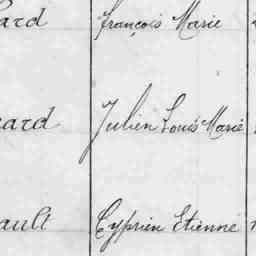 ard François Marie
ard Julien Louis Marie
ault Cyprien Etienne